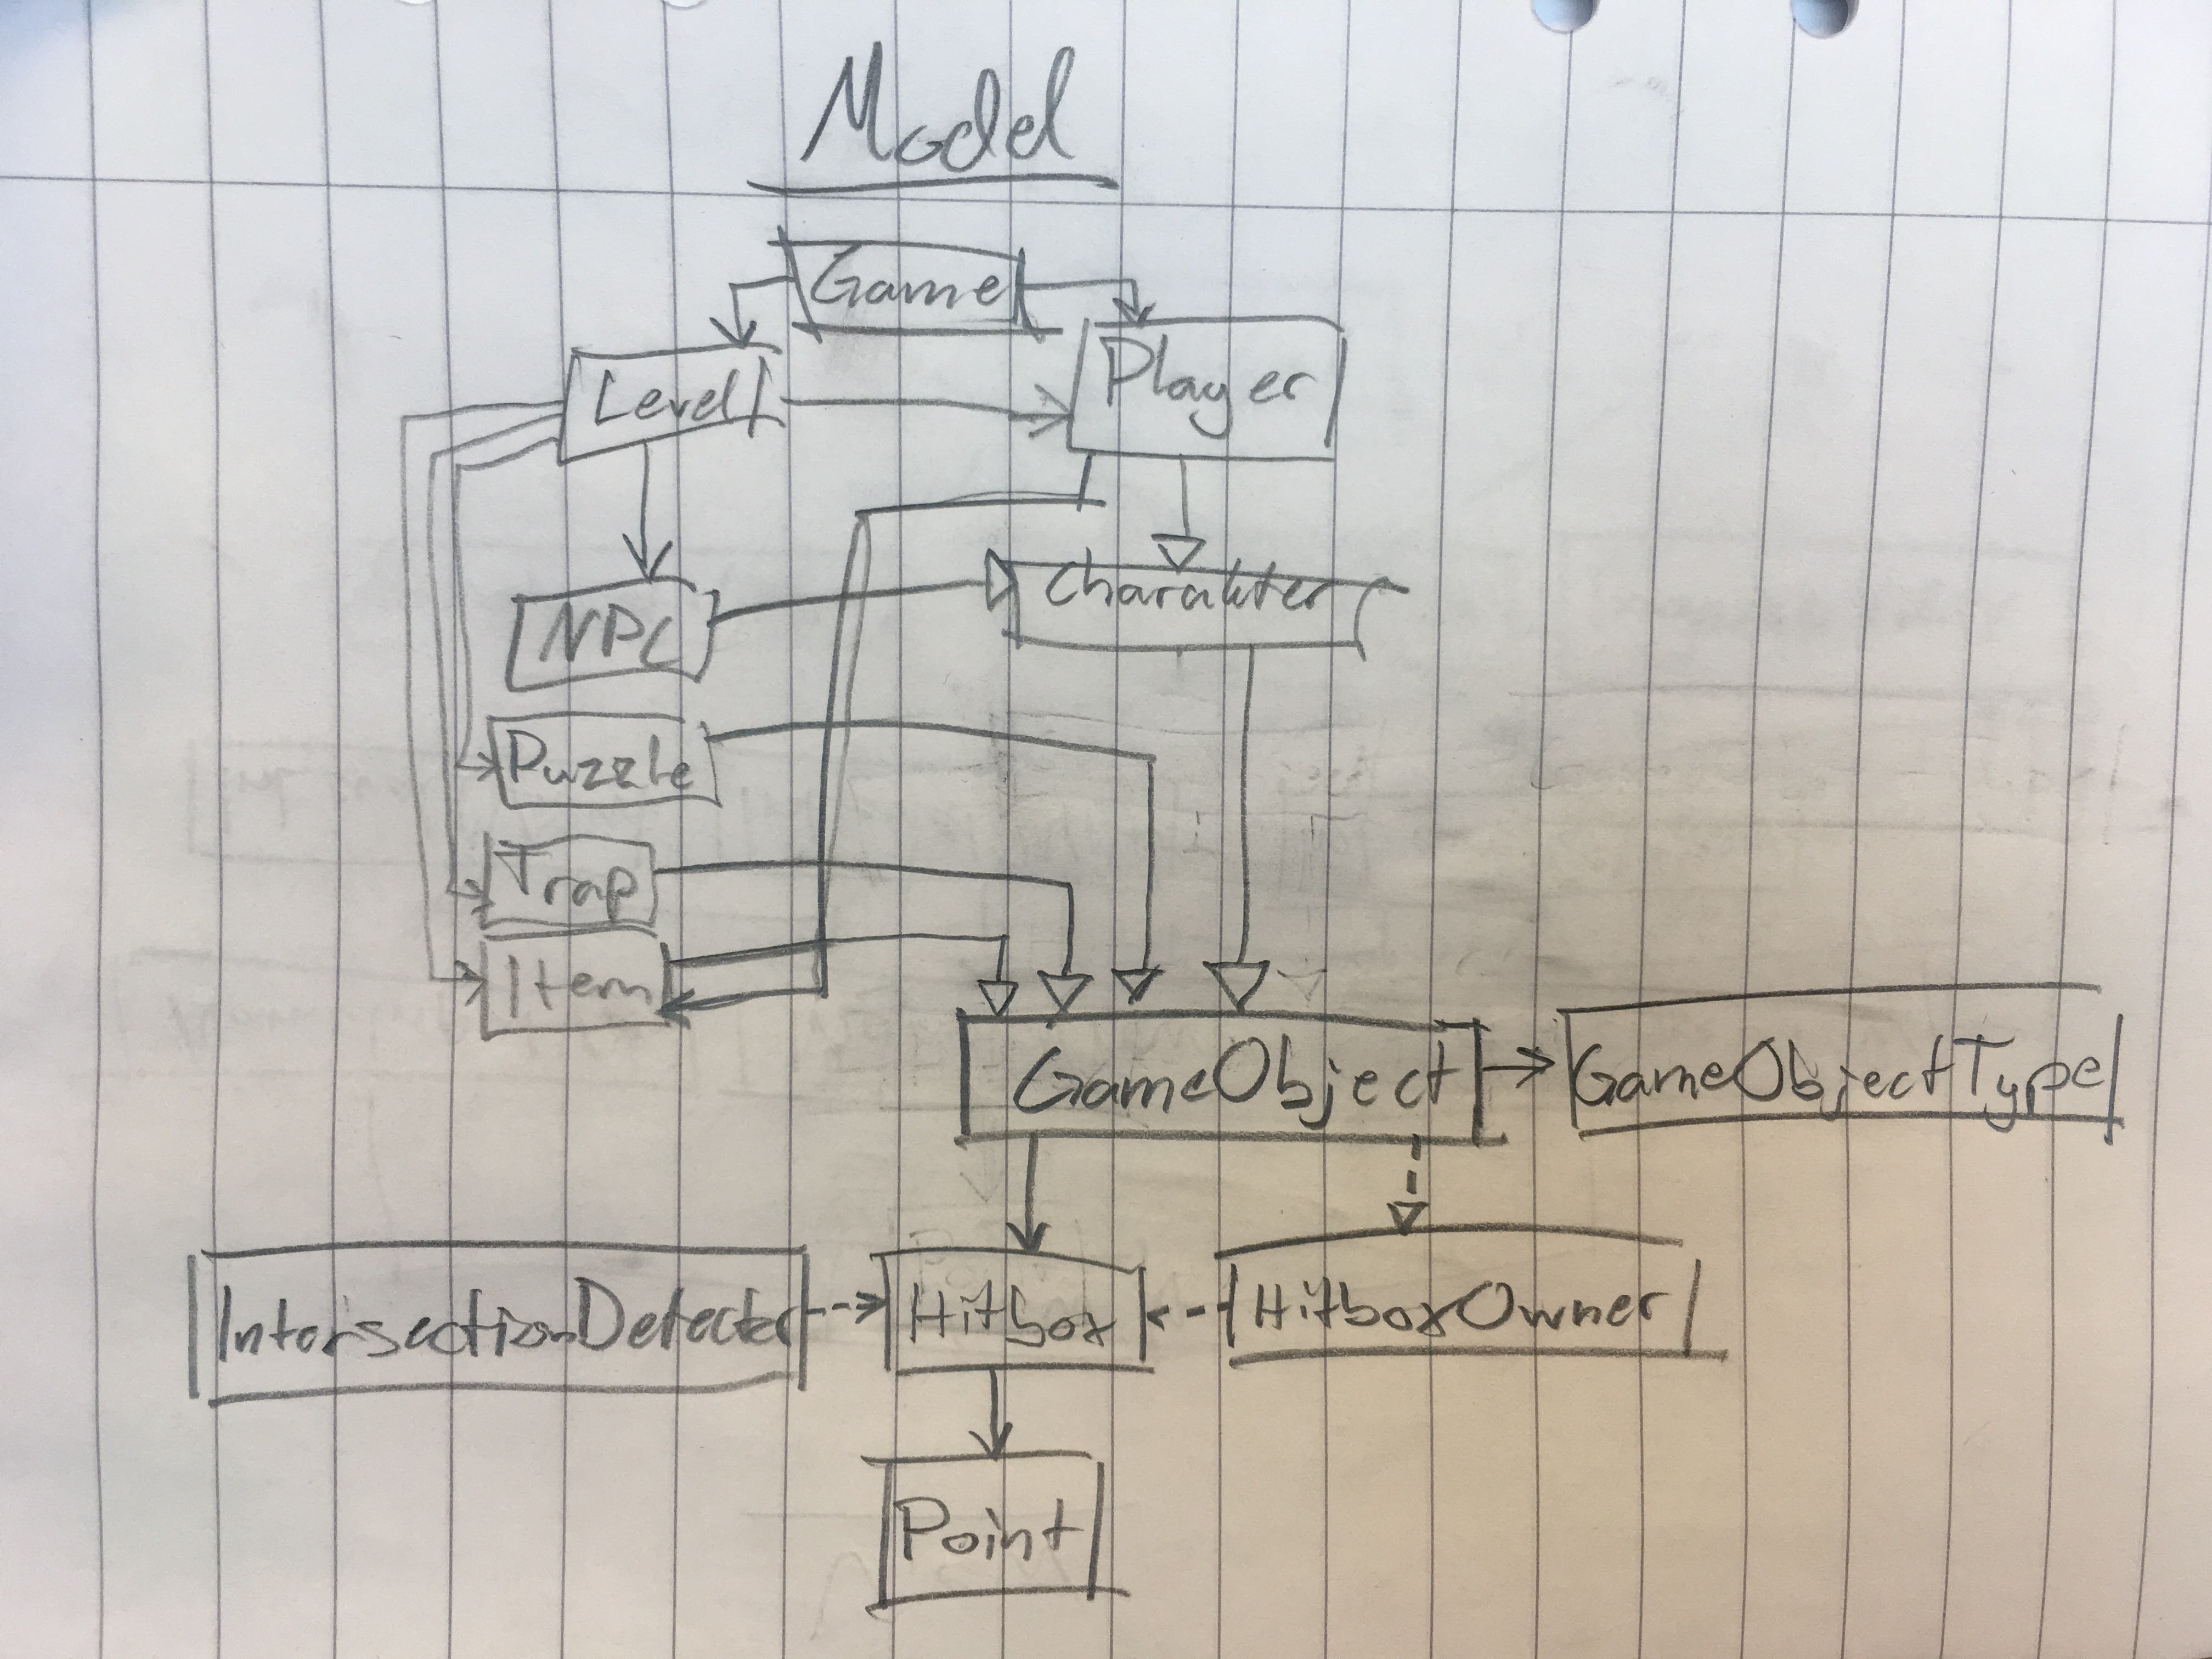 Model
Game
Level
Player
NPC
Charakter
Puzzle
Trap
Item
GameObject
GameObjectType
IntersectionDetector
Hitbox
HitboxOwner
Point